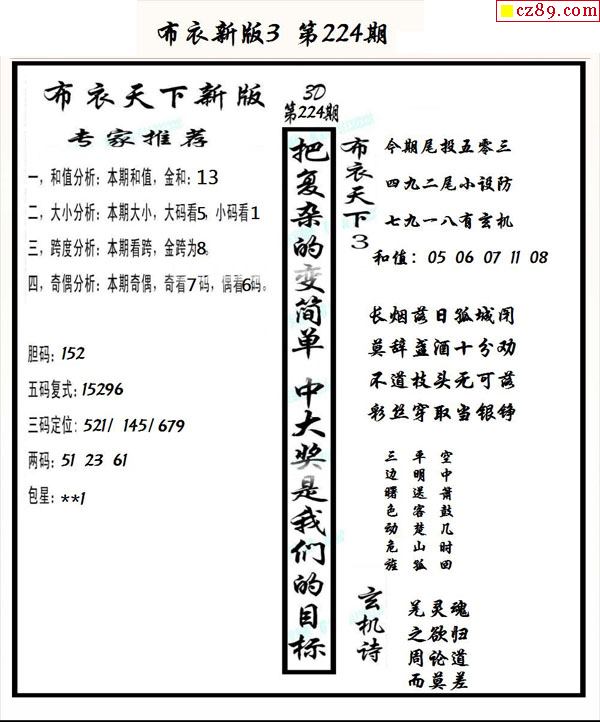 cz89.com
布衣新版3 第224期
布衣天下新版
专家推荐
一，和值分析：本期和值，金和：13
二，大小分析：本期大小，大码看5，小码看1
三，跨度分析：本期看跨，金跨为8。
四，奇偶分析：本期奇偶，奇看7码，偶看6码。
胆码：152
五码复式：15296
三码定位：521/ 145/679
两码：51 23 61
包星：**1
3D
第224期
把复杂的变简单 中大奖是我们的目标
布衣天下3
今期尾投五零三
四九二尾小设防
七九一八有玄机
和值：05 06 07 11 08
长烟落日孤城闭
莫辞盏酒十分劝
不道枝头无可落
彩丝穿取当银铮
空中箫鼓几时回
平明送客楚山孤
三边曙色动危旌
玄机诗
羌灵魂
之欲归
周论道
而莫差